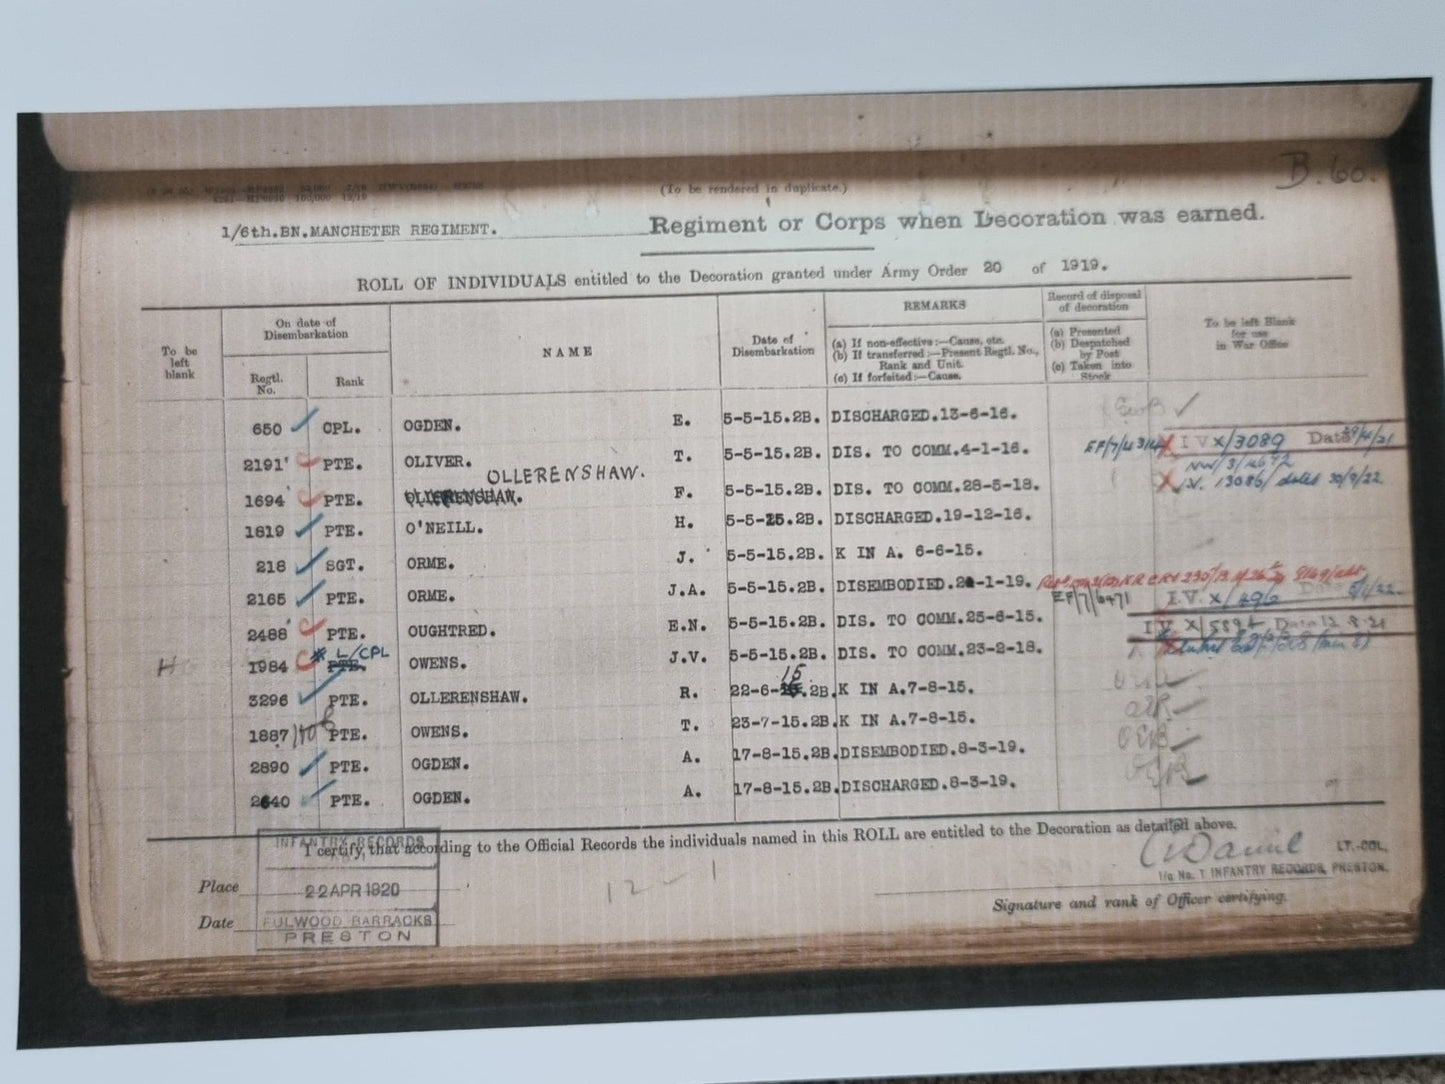 B.60.
(To be rendered in duplicate.)
1/6th.BN.MANCHETER REGIMENT. Regiment or Corps when Decoration was earned.
ROLL OF INDIVIDUALS entitled to the Decoration granted under Army Order 20 of 1919.
To be left blank
On date of Disembarkation
Regtl. No.
Rank
NAME
Date of Disembarkation
REMARKS
(a) If non-effective:—Cause, etc.
(b) If transferred:—Present Regtl. No., Rank and Unit.
(c) If forfeited:—Cause.
Record of disposal of decoration
(a) Presented
(b) Despatched by Post
(c) Taken into Stock
To be left Blank for use in War Office
650 CPL. OGDEN. E. 5-5-15.2B. DISCHARGED.13-6-16.
2191 PTE. OLIVER. T. 5-5-15.2B. DIS. TO COMM.4-1-16. IV X/3089
OLLERENSHAW.
1694 PTE. OLLERENSHAW. F. 5-5-15.2B. DIS. TO COMM.28-5-18. I.V. 13086/ dated 30/9/22
1819 PTE. O'NEILL. H. 5-5-15.2B. DISCHARGED.19-12-16.
218 SGT. ORME. J. 5-5-15.2B. K IN A. 6-6-15.
2165 PTE. ORME. J.A. 5-5-15.2B. DISEMBODIED. -1-19.
EF/7/6471 I.V. X/496
2488 PTE. OUGHTRED. E.N. 5-5-15.2B. DIS. TO COMM.25-6-15. IV X/5894
L/CPL
H 1984 PTE. OWENS. J.V. 5-5-15.2B. DIS. TO COMM.23-2-18.
15
3296 PTE. OLLERENSHAW. R. 22-6- .2B. K IN A.7-8-15.
1887 PTE. OWENS. T. 23-7-15.2B. K IN A.7-8-15.
2890 PTE. OGDEN. A. 17-8-15.2B. DISEMBODIED.8-3-19.
2640 PTE. OGDEN. A. 17-8-15.2B. DISCHARGED.8-3-19.
I certify, that according to the Official Records the individuals named in this ROLL are entitled to the Decoration as detailed above.
INFANTRY RECORDS
LT.-COL.
I/c No. 1 INFANTRY RECORDS, PRESTON.
Place
22 APR 1920
12 - 1
Signature and rank of Officer certifying.
Date
FULWOOD BARRACKS
PRESTON